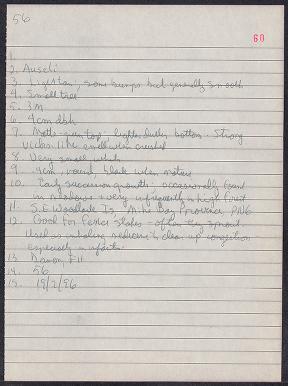 56
60
1.
2. Auseli
3. Light tan, some bumps but generally smooth
4. Small tree
5. 3M
6. 4cm dbh
7. Matte green top, lighter, dully bottom. Strong
Vicks like smell when crushed
8. Very small white
9. .4cm, round, black when mature
10. Early succession growth, occasionally found
in Meadows + very infrequently in high forest
11. S.E. Woodlark Is. Milne Bay Province PNG
12. Good for fence stakes - often they sprout.
Used as inhaling medicine to clear up congestion
especially in infants.
13. Damon F11
14. 56
15. 19/2/96